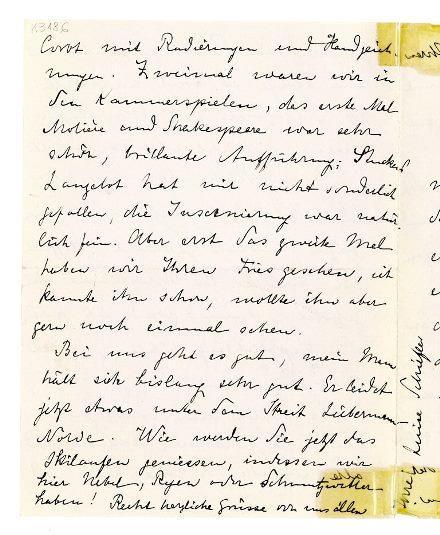 K3186
Corot mit Radierungen und Handzeich-
nungen. Zweimal waren wir in
den Kammerspielen, das erste Mal
Molière und Shakespeare war sehr
schön, brillante Aufführung; Stuckens
Lanzelot hat mir nicht sonderlich
gefallen, die Inscenierung war natür-
lich fein. Aber erst das zweite Mal
haben wir Ihren Fries gesehen, ich
kannte ihn schon, wollte ihn aber
gern noch einmal sehen.
Bei uns geht es gut, mein Mann
hält sich bislang sehr gut. Er leidet
jetzt etwas unter dem Streit Liebermann-
Nolde. Wie werden Sie jetzt das
Skilaufen geniessen, indessen wir
hier Nebel, Regen oder Schmutzwetter
haben! Recht herzliche Grüsse von uns allen
Ihre Luise Schiefler